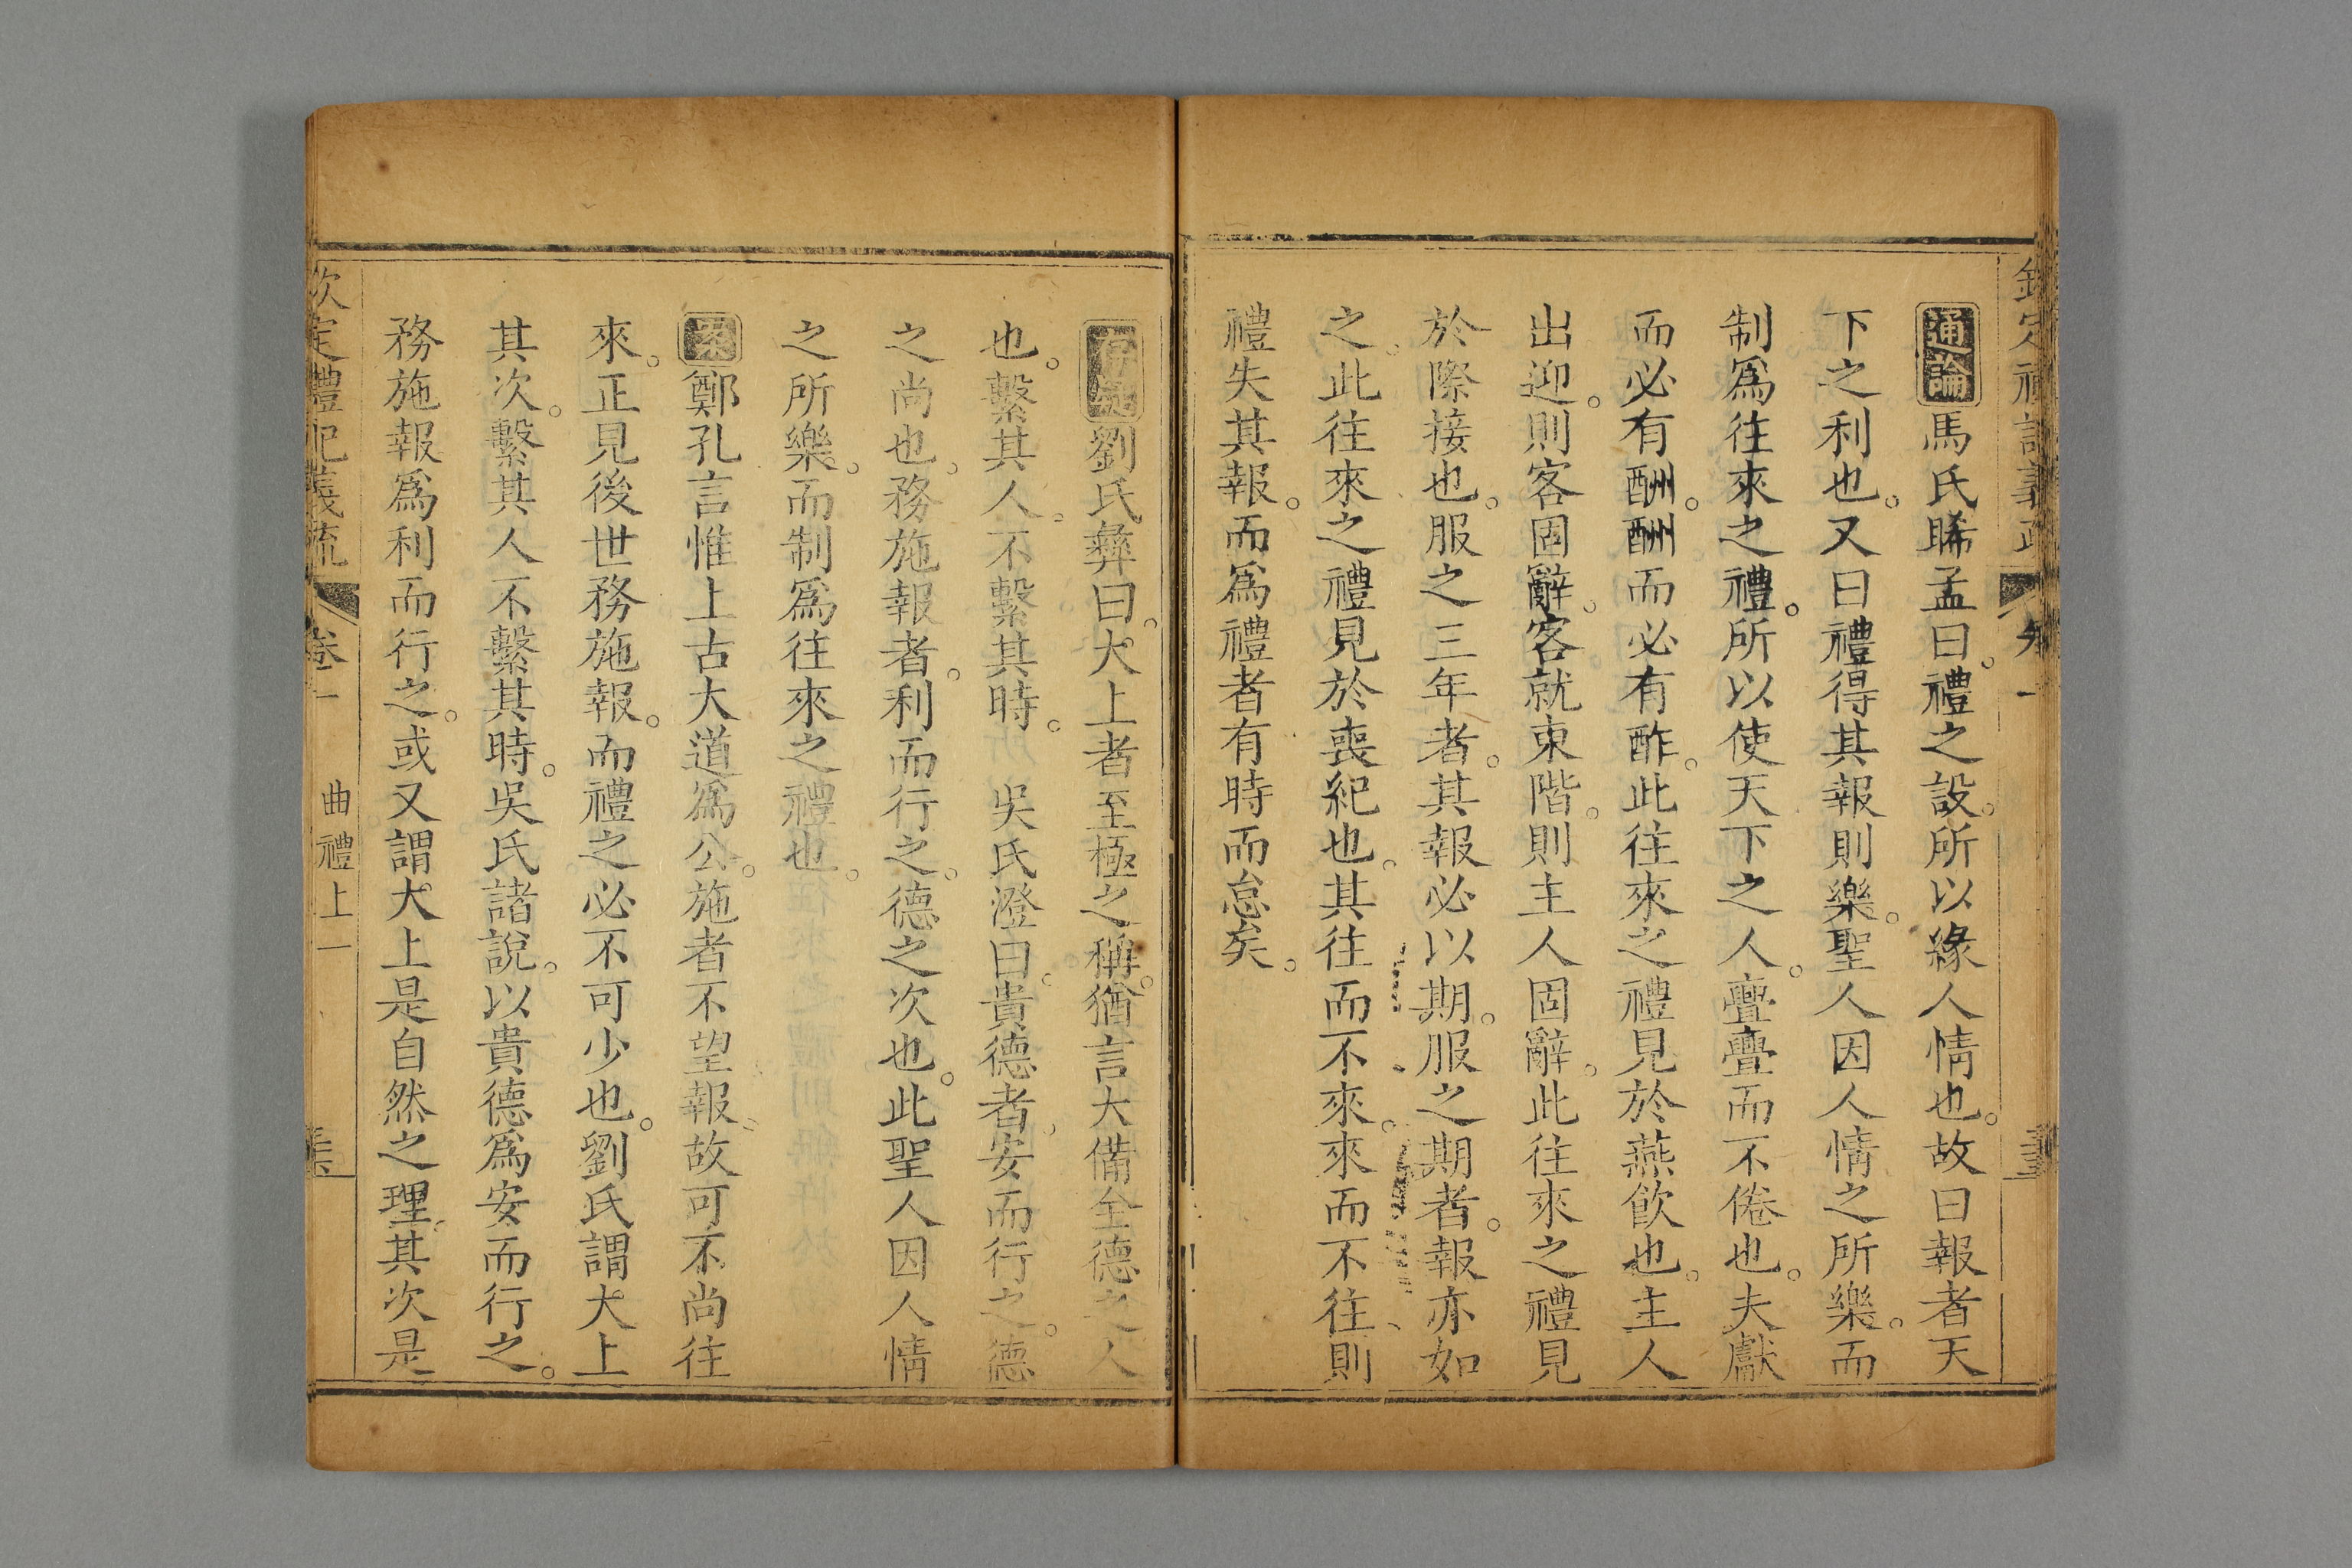 通論馬氏睎孟曰禮之設。所以緣人情也。故曰報者天
下之利也。又曰禮得其報則樂。聖人因人情之所樂。而
制爲往來之禮。所以使天下之人。亹亹而不倦也。夫獻
而必有酬。酬而必有酢。此往來之禮見於燕飲也。主人
出迎。則客固辭。客就東階。則主人固辭。此往來之禮見
於際接也。服之三年者。其報必以期。服之期者。報亦如
之此往來之禮見於喪紀也。其往而不來。來而不往則
禮失其報。而爲禮者有時而怠矣。
存疑劉氏彝曰。大上者至極之稱。猶言大備全德之人
也。繫其人。不繫其時。吳氏澄曰。貴德者。安而行之。德
之尚也。務施報者。利而行之。德之次也。此聖人因人情
之所樂。而制爲往來之禮也。
案鄭孔言惟上古大道爲公。施者不望報。故可不尚往
來。正見後世務施報。而禮之必不可少也。劉氏謂大上
其次。繫其人不繫其時。吳氏諸說。以貴德爲安而行之。
務施報爲利而行之。或又謂大上是自然之理。其次是
欽定禮記義疏 卷一 曲禮上一